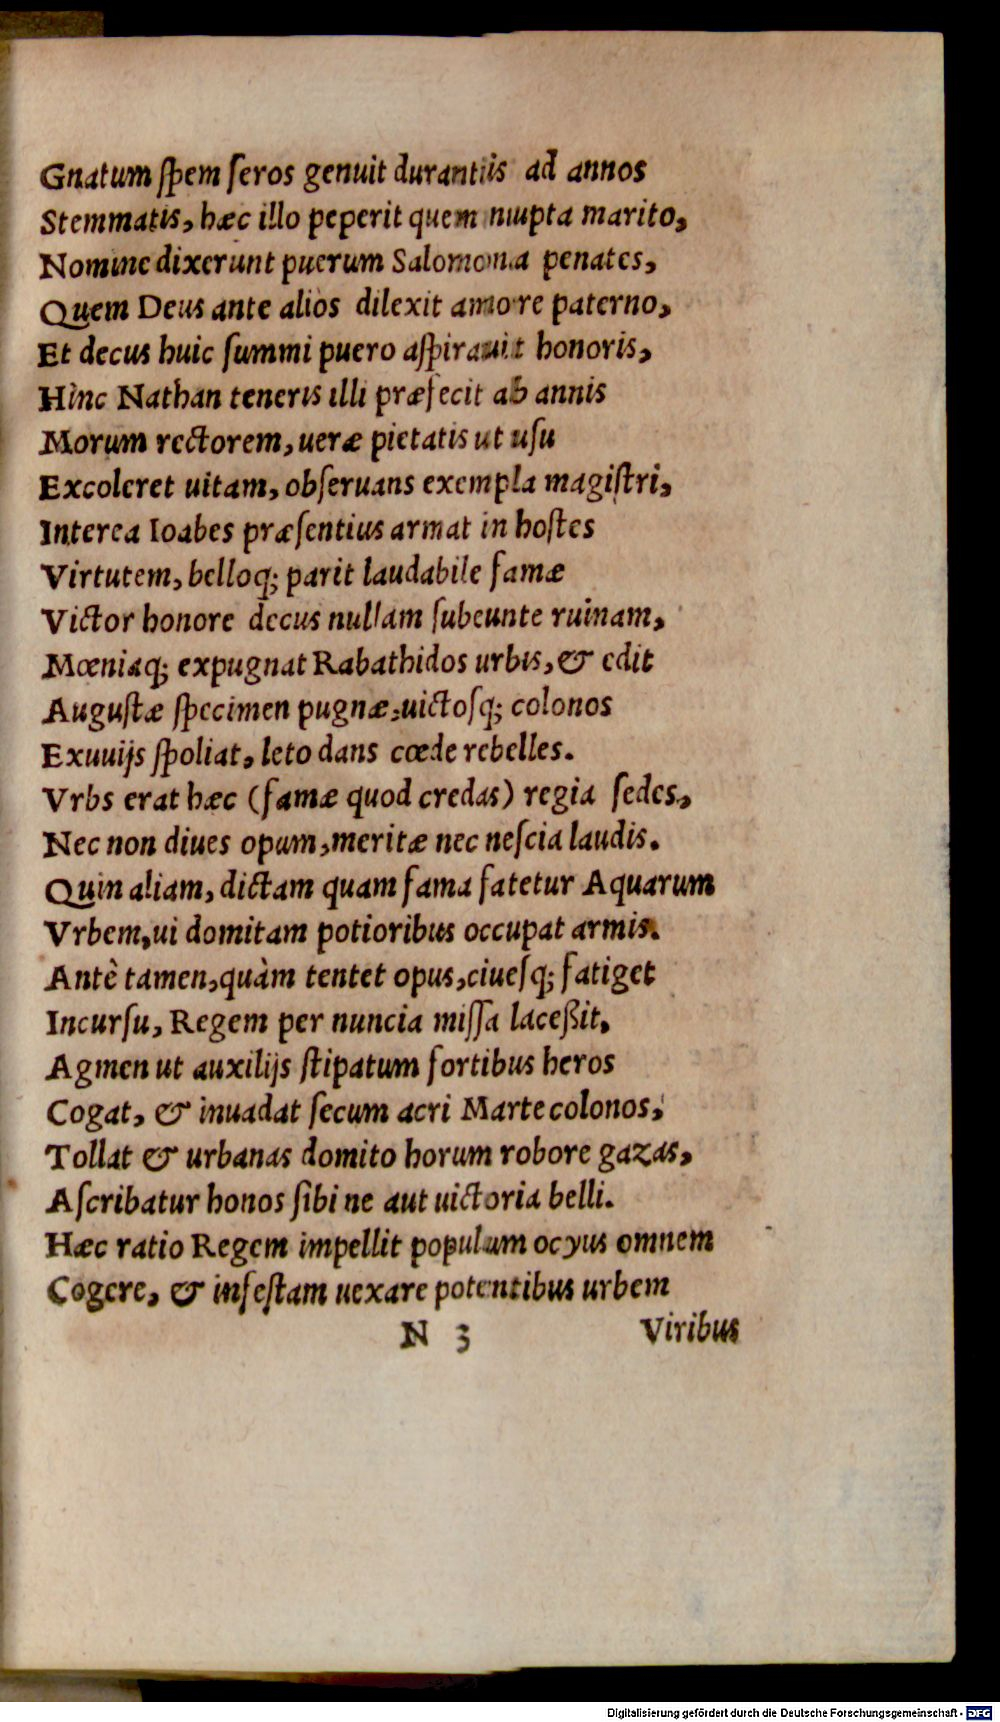 Gnatum ſpem ſeros genuit durantis ad annos
Stemmatis, hæc illo peperit quem nupta marito,
Nomine dixerunt puerum Salomona penates,
Quem Deus ante alios dilexit amore paterno,
Et decus huic ſummi puero aſpirauit honoris,
Hinc Nathan teneris illi præfecit ab annis
Morum rectorem, ueræ pietatis ut uſu
Excoleret uitam, obſeruans exempla magiſtri,
Interea Ioabes præſentius armat in hoſtes
Virtutem, belloq; parit laudabile famæ
Victor honore decus nullam ſubeunte ruinam,
Mœniaq; expugnat Rabathidos urbis, & edit
Auguſtæ ſpecimen pugnæ, uictoſq; colonos
Exuuijs ſpoliat, leto dans cœde rebelles.
Vrbs erat hæc (famæ quod credas) regia ſedes,
Nec non diues opum, meritæ nec neſcia laudis.
Quin aliam, dictam quam fama fatetur Aquarum
Vrbem, ui domitam potioribus occupat armis.
Antè tamen, quàm tentet opus, ciueſq; fatiget
Incurſu, Regem per nuncia miſſa laceßit,
Agmen ut auxilijs ſtipatum fortibus heros
Cogat, & inuadat ſecum acri Marte colonos,
Tollat & urbanas domito horum robore gazas,
Aſcribatur honos ſibi ne aut uictoria belli.
Hæc ratio Regem impellit populum ocyus omnem
Cogere, & infeſtam uexare potentibus urbem
N 3 Viribus
Digitalisierung gefördert durch die Deutsche Forschungsgemeinschaft - DFG